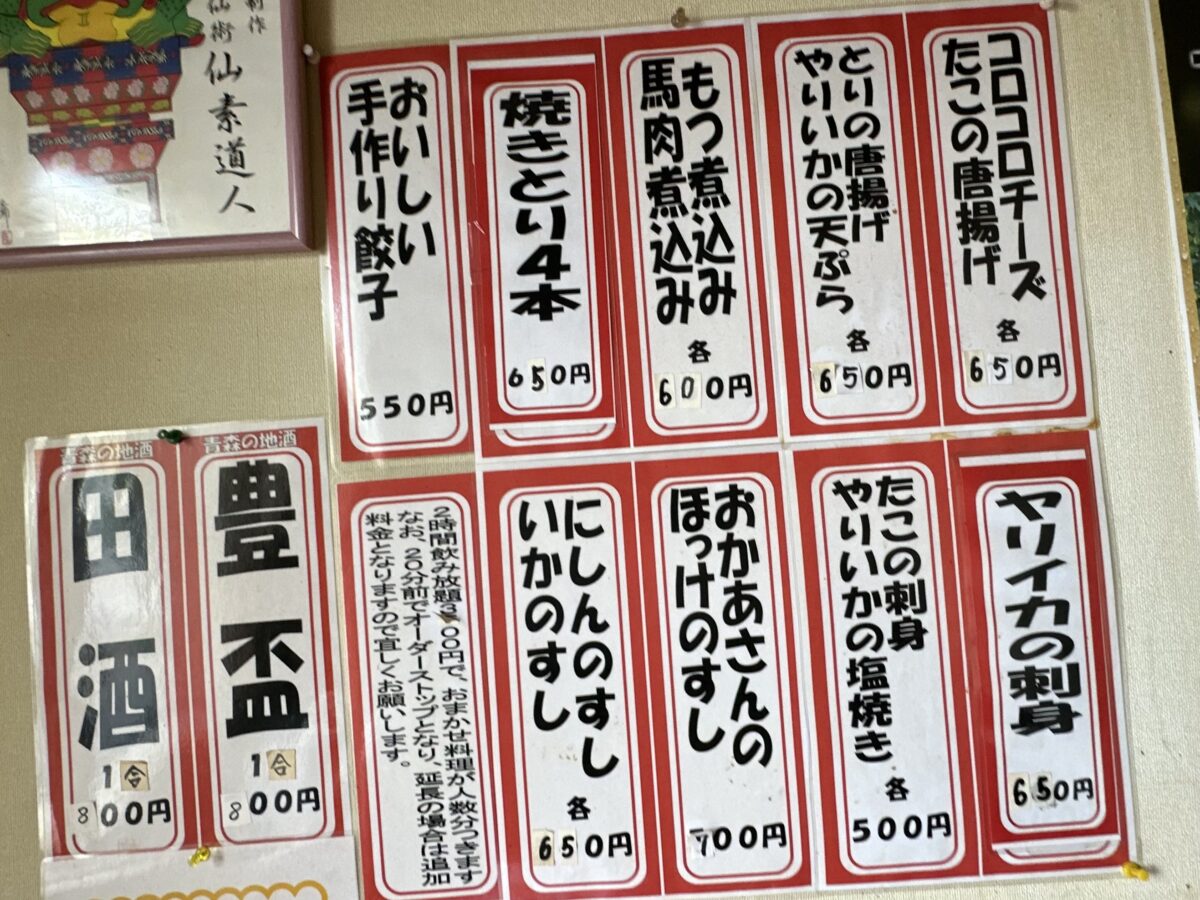 制作
仙術
仙素道人
コロコロチーズ
たこの唐揚げ
各
650円
とりの唐揚げ
やりいかの天ぷら
各
650円
もつ煮込み
馬肉煮込み
各
600円
焼きとり4本
650円
おいしい
手作り餃子
550円
ヤリイカの刺身
650円
たこの刺身
やりいかの塩焼き
各
500円
おかあさんの
ほっけのすし
700円
にしんのすし
いかのすし
各
650円
2時間飲み放題3500円で、おまかせ料理が人数分つきます
なお、20分前でオーダーストップとなり、延長の場合は追加
料金となりますので宜しくお願いします。
青森の地酒
豊盃
1合
800円
青森の地酒
田酒
1合
800円